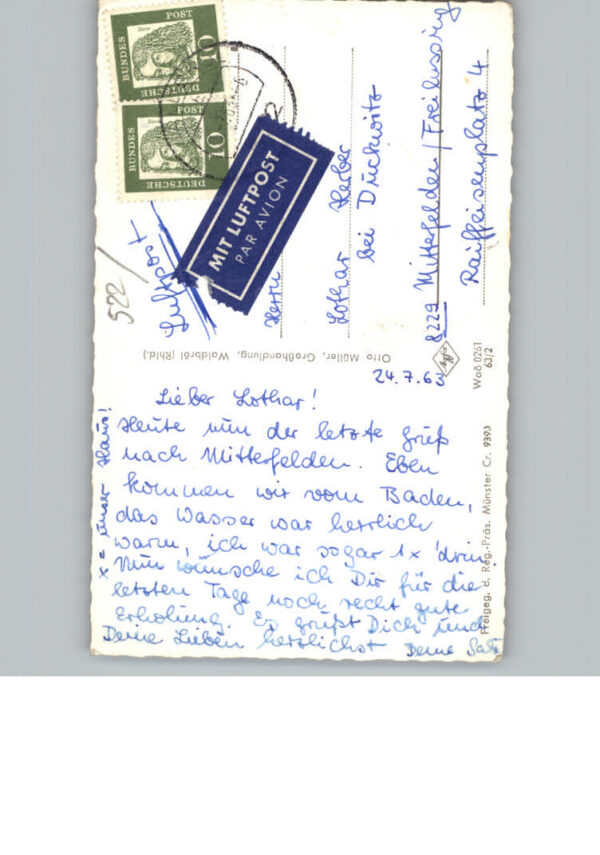 Lieber Lothar!
Heute nun der letzte Gruß
nach Mitterfelden. Eben
kommen wir vom Baden,
das Wasser war herrlich
warm, ich war sogar 1x 'drin.
Nun wünsche ich Dir für die
letzten Tage noch recht gute
Erholung. Es grüßt Dich und
Deine Lieben herzlichst Deine
x = unser Haus!
24.7.63
Luftpost
522/
Herrn
Lothar Herber
bei Duckwitz
8229 Mittefelden/Freilassing
Raiffeisenplatz 4
MIT LUFTPOST
PAR AVION
DEUTSCHE
BUNDES
POST
10
Dürer
DEUTSCHE
BUNDES
POST
10
Otto Müller, Großhandlung, Waldbröl (Rhld.)
Agfa
Waö 0261
63/2
Freigeg. d. Reg.-Präs. Münster Cr. 9393